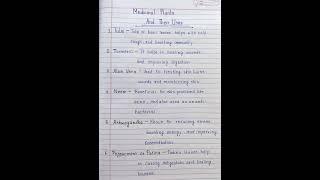 Medicinal Plants
And Their Uses
1. Tulsi – Tulsi or basil leaves helps with cold
cough, and boosting immunity
2. Turmeric – It helps in healing wounds
and improving digestion
3. Aloe Vera – Used for treating skin burns
wounds and moisturizing skin
4. Neem – Beneficial for skin problems like
acne, and also used as an anti
bacterial
5. Ashwagandha – Known for reducing stress,
boosting energy, and improving
concentration
6. Peppermint or Pudina – Pudina leaves help
in curing indigestion and